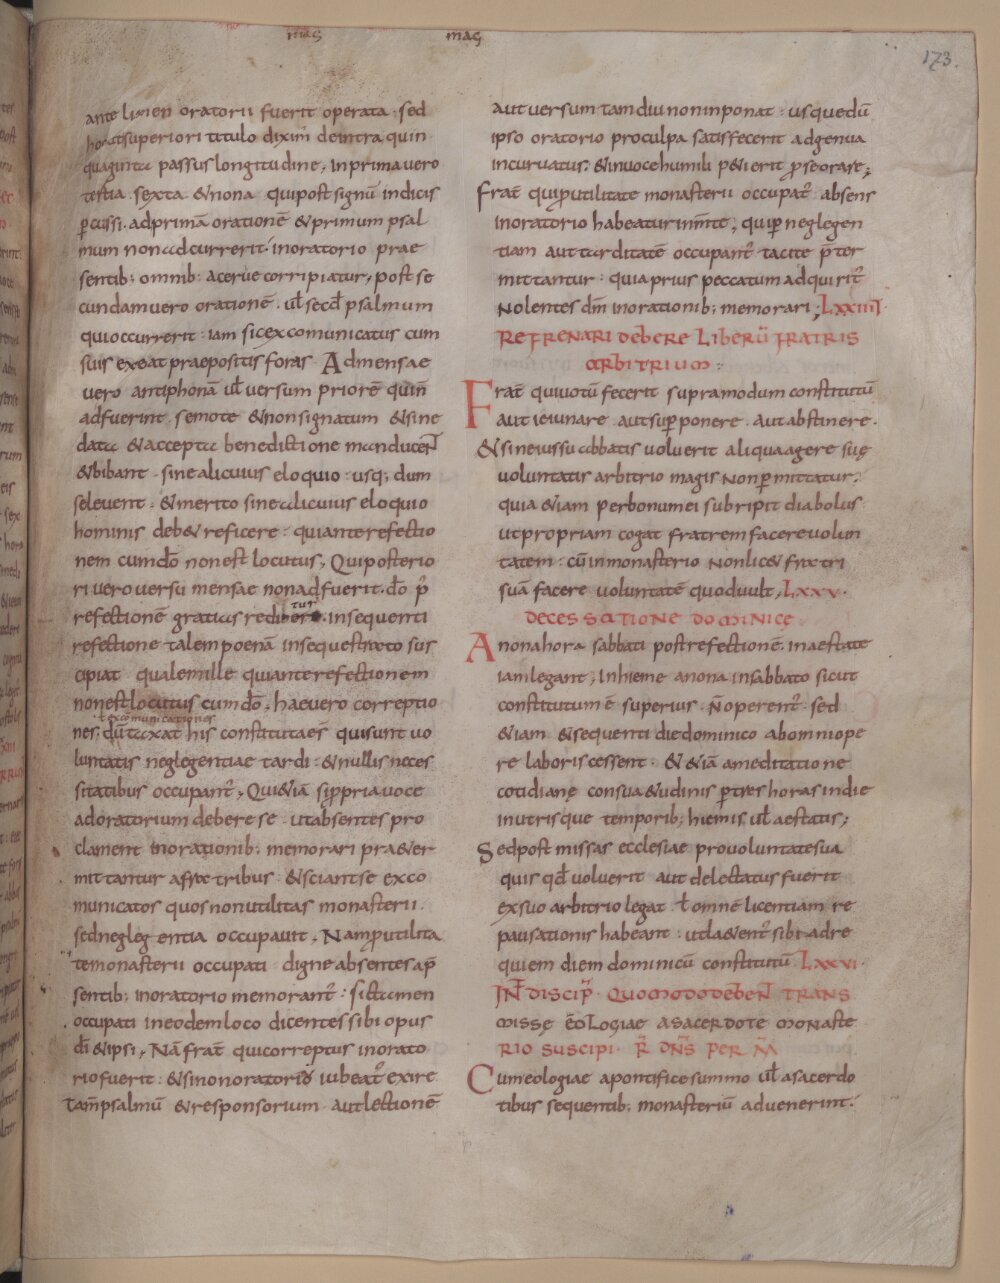 mag mag
173.
ante limen oratorii fuerit operata · sed
horatis superiori titulo diximˀ deintra quin
quaginta passus longitudine; in prima uero
tertia · sexta · & nona · qui post signū indicis
ꝑcussi · ad primā orationē & primum psal
mum non adcurrerit · in oratorio prae
sentib; omnib: acerue corripiatur; post se
cundam uero orationē · uł secđ psalmum
qui occurrerit · iam sic excomunicatus cum
suis exeat praepositis foras · Ad mensae
uero antiphonā uł uersum priorē quin
adfuerint semote & non signatum & sine
data & accepta benedictione manducen̄
& bibant · sine alicuius eloquio · usq; dum
seleuent · & merito sine alicuius eloquio
hominis deb& reficere · qui ante refectio
nem cum dō non est locutus; Qui posterio
ri uero uersu mensae non adfuerit · dō pˀ
refectionē gratias redi ber tur · insequenti
refectione talem poenā insequestrato sus
cipiat qualem ille qui ante refectionem
non est locutus cum dō; hae uero correptio
ł excomunicationes
nes · dū taxat his constitutaēs qui sunt uo
luntatis neglegentiae tardi · & nullis neces
sitatibus occupantˀ; Qui &iā si ꝓpria uoce
ad oratorium debere se · ut absentes pro
clament in orationib; memorari pra&er
mittantur a fratribus · & sciant se exco
municatos quos non utilitas monasterii ·
sed neglegentia occupauit; Nam ꝓ utilita
te monasterii occupati digne absentes a p̄
sentib; in oratorio memorantˀ: si tamen
occupati in eodem loco dicent essibi opus
dī & ipsi; Nā fraē qui correptus in orato
rio fuerit · & si non oratorio iubeatˀ exire
Tam psalmū & responsorium aut lectionē
aut uersum tamdiu non inponat · usquedū
ipso oratorio pro culpa satisfecerit ad genua
incuruatus · & in uoce humili p&ierit ꝓ se orare;
Fraē qui ꝓ utilitate monasterii occupatˀ absens
in oratorio habeatur in mīte; qui ꝑ neglegen
tiam aut tarditatē occupantˀ tacite p̄ter
mittantur · quia prius peccatum adquiritˀ
nolentes dm̄ in orationib; memorari; LXXIIII
REFRENARI DEBERE LIBERŪ FRATRIS
ARBITRIUM :
Fraē qui uotū fecerit supra modum constitutū
aut ieiunare aut suꝑponere · aut abstinere ·
& sine iussu abbatis uoluerit aliqua agere suę
uoluntatis arbitrio magis non ꝑmittatur;
quia &iam per bonum ei subripit diabolus
ut propriam cogat fratrem facere uolun
tatem: cū in monasterio non lic& fratri
suā facere uoluntatē quod uult; LXXV ·
DE CESSATIONE DOMINICE ·
A nona hora sabbati post refectionē in aestate
iam legant; in hieme a nona in sabbato sicut
constitutum ē superius · N̄ operentˀ · sed
&iam & sequenti die dominico ab omni ope
re laboris cessent · & &iā a meditatione
cotidianę consua&udinis ꝑ tres horas in die
in utrisque temporib; hiemis uł aestatis;
Sed post missas ecclesiae pro uoluntate sua
quis qđ uoluerit aut delectatus fuerit
ex suo arbitrio legat · ł omnē licentiam re
pausationis habeant · ut la&entˀ sibi ad re
quiem diem dominicū constitutū LXXVI ·
IN̄T DISCIP̄ · QUOMODO DEBEN̄T TRANS
MISSĘ EOLOGIAE A SACERDOTE MONASTE
RIO SUSCIPI · R̄ DN̄S PER M̄A
Cum eologiae a pontifice summo uł a sacerdo
tibus sequentib; monasteriū aduenerint ·